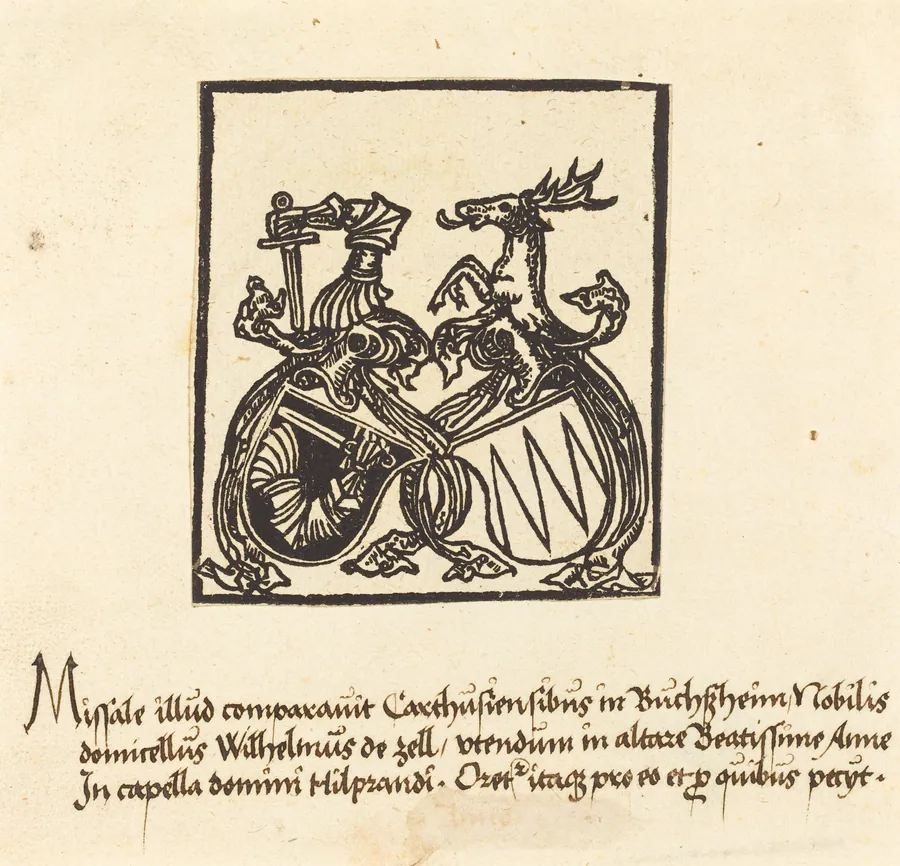 Missale illud comparauit Carthusiensibus in Buchßheim/ Nobilis
domicellus Wilhelmus de zell/ vtendum in altare Beatissime Anne
In capella domini Hilprandi. Oretr itaqꝫ pro eo et ꝓ quibus pecyt.